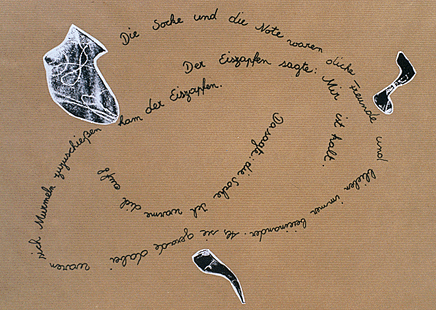 Die Socke und die Note waren dicke Freunde und blieben immer beieinander. Als sie gerade dabei waren sich Murmeln zuzuschießen kam der Eiszapfen.
Der Eiszapfen sagte: Mir ist kalt.
Da sagte die Socke Ich wärme dich auf